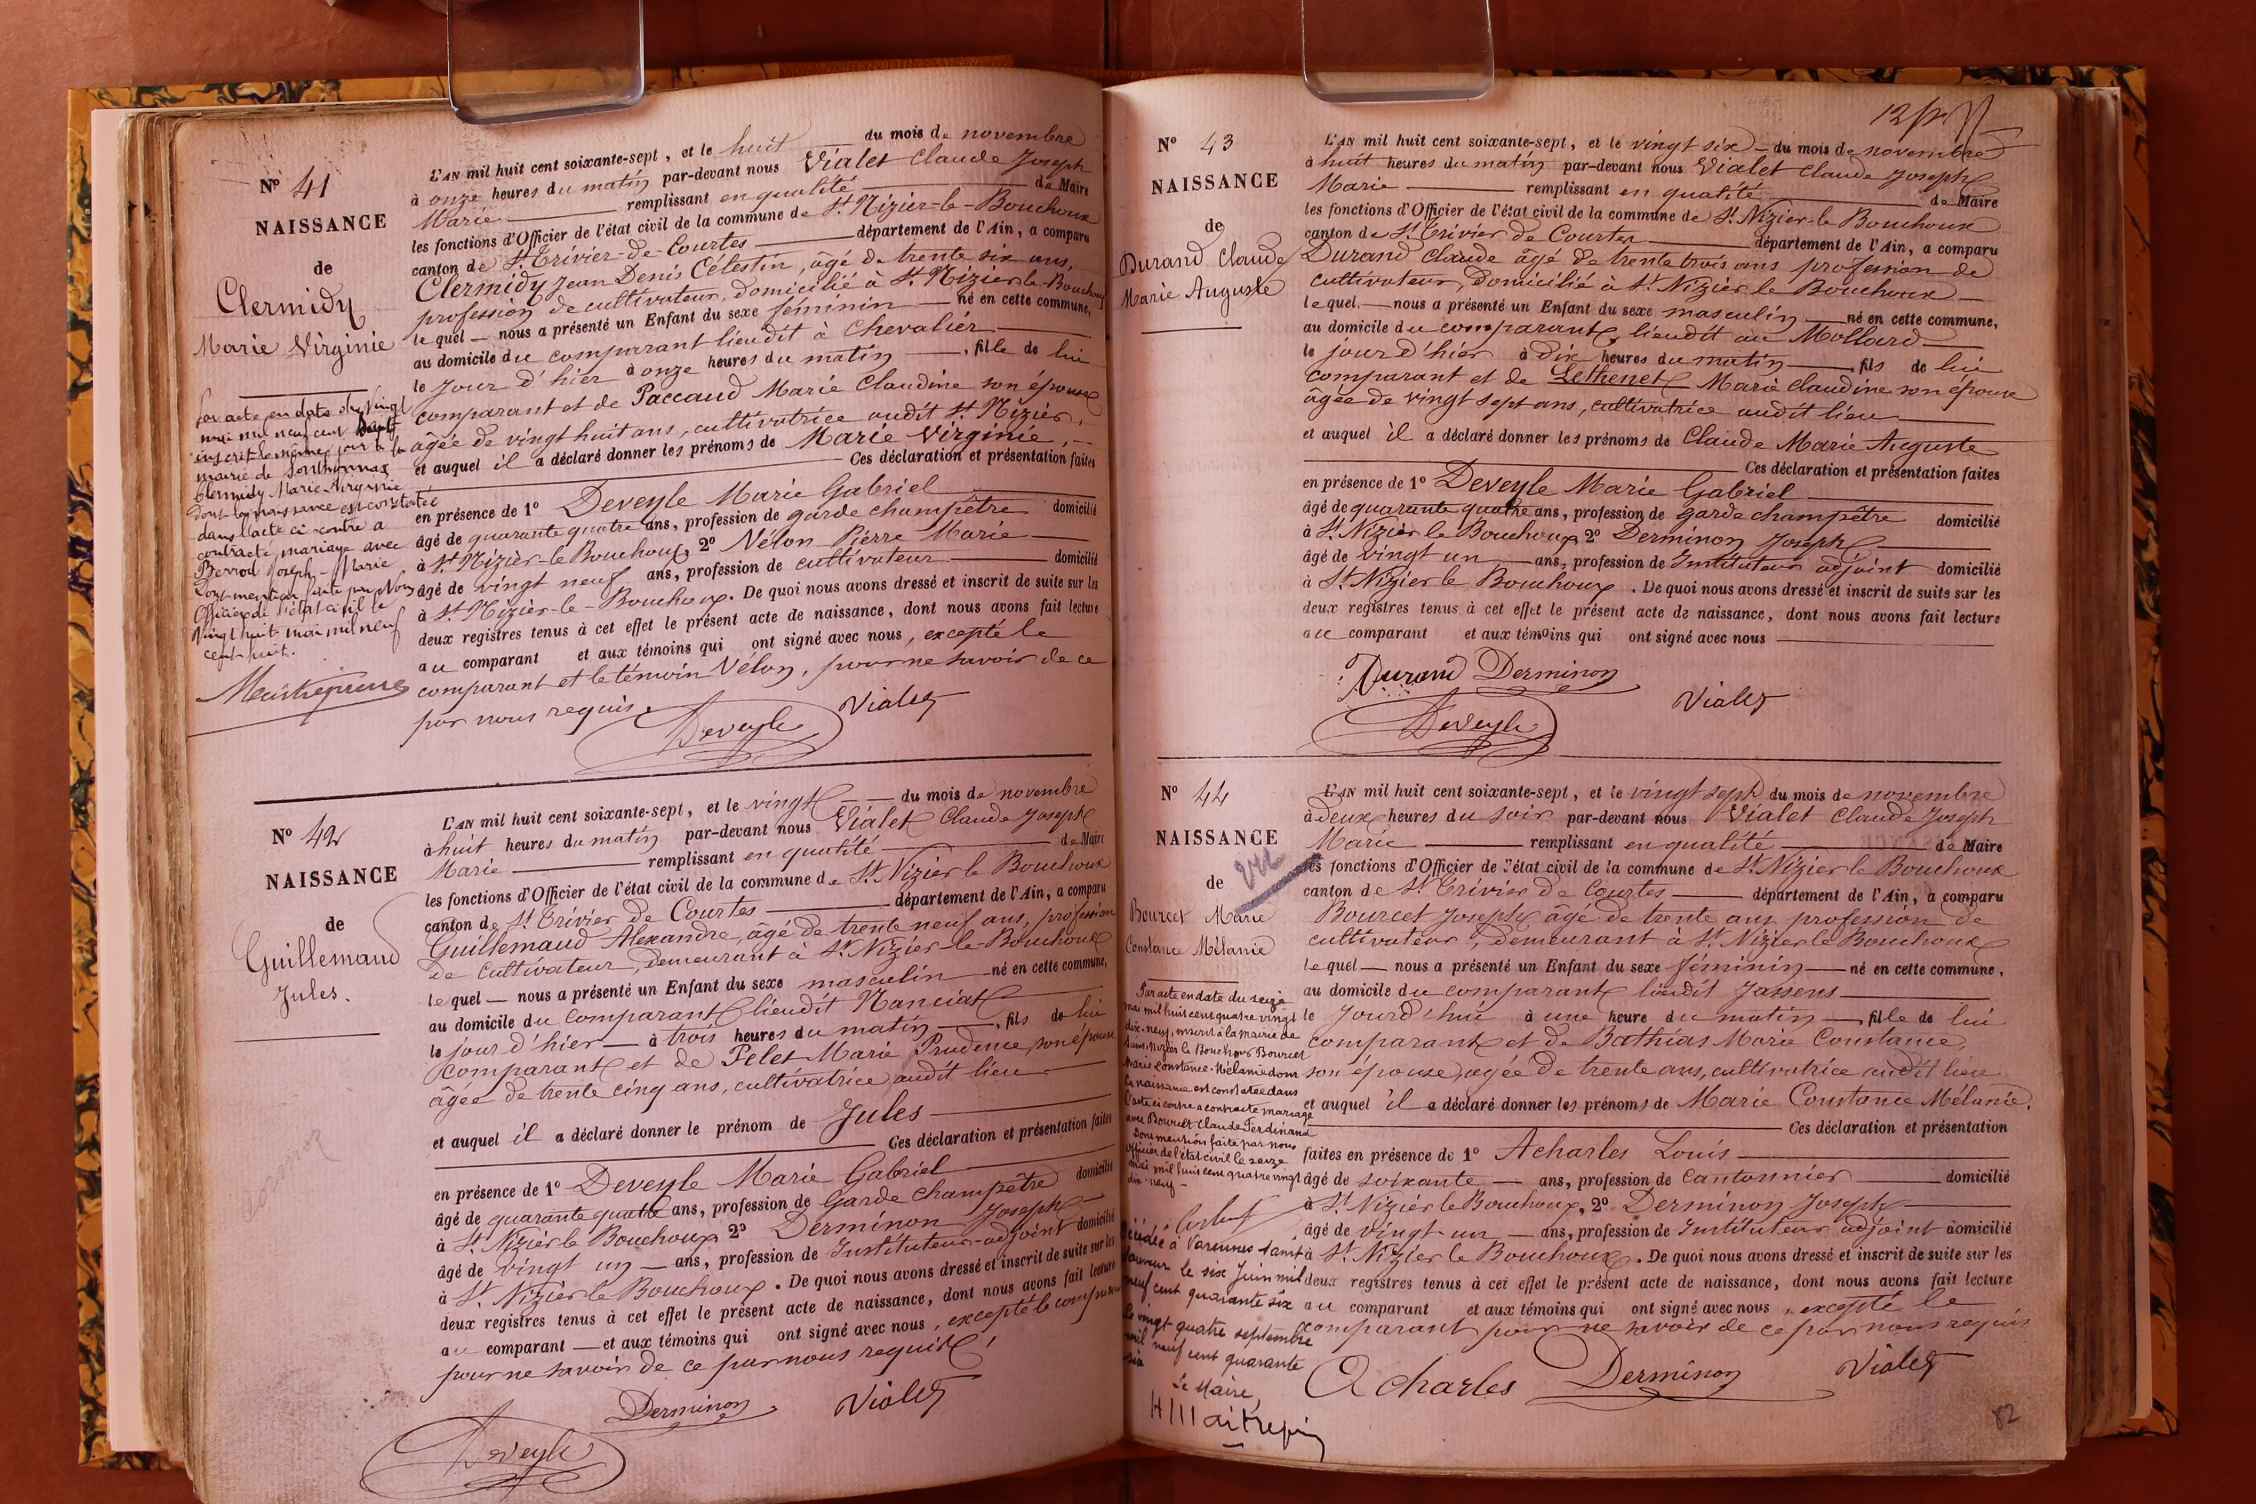 Nº 41
NAISSANCE
de
Clermidy
Marie Virginie
Par acte en date du vingt
mai mil neuf cent huit
inscrit le même jour à la
mairie de
Clermidy Marie Virginie
dont la naissance est constatée
dans l'acte ci contre a
contracté mariage avec
Berrod Joseph-Marie
Dont mention faite par Nous
Officier de l'état civil le
Vingt huit mai mil neuf
cent huit.
L'AN mil huit cent soixante-sept, et le huit du mois de novembre
à onze heures du matin par-devant nous Vialet Claude Joseph
Marie remplissant en qualité de Maire
les fonctions d'Officier de l'état civil de la commune de St Nizier-le-Bouchoux
canton de St Trivier-de-Courtes département de l'Ain, a comparu
Clermidy Jean Denis Célestin, âgé de trente six ans,
profession de cultivateur, domicilié à St Nizier le Bouchoux
lequel nous a présenté un Enfant du sexe féminin né en cette commune,
au domicile du comparant lieudit à Chevalier
le jour d'hier à onze heures du matin, fille de lui
comparant et de Paccaud Marie Claudine son épouse
âgée de vingt huit ans, cultivatrice audit St Nizier,
et auquel il a déclaré donner les prénoms de Marie Virginie,
Ces déclaration et présentation faites
en présence de 1º Deveyle Marie Gabriel
âgé de quarante quatre ans, profession de garde champêtre domicilié
à St Nizier-le-Bouchoux, 2º Vélon Pierre Marie
âgé de vingt neuf ans, profession de cultivateur domicilié
à St Nizier-le-Bouchoux. De quoi nous avons dressé et inscrit de suite sur les
deux registres tenus à cet effet le présent acte de naissance, dont nous avons fait lecture
au comparant et aux témoins qui ont signé avec nous, excepté le
comparant et le témoin Vélon, pour ne savoir de ce
par nous requis.
Deveyle Vialet
Nº 42
NAISSANCE
de
Guillemaud
Jules.
L'AN mil huit cent soixante-sept, et le vingt du mois de novembre
à huit heures du matin par-devant nous Vialet Claude Joseph
Marie remplissant en qualité de Maire
les fonctions d'Officier de l'état civil de la commune de St Nizier le Bouchoux
canton de St Trivier de Courtes département de l'Ain, a comparu
Guillemaud Alexandre, âgé de trente neuf ans, profession
de cultivateur, demeurant à St Nizier-le-Bouchoux
lequel nous a présenté un Enfant du sexe masculin né en cette commune,
au domicile du comparant lieudit Nanciat
le jour d'hier à trois heures du matin, fils de lui
comparant et de Pelet Marie Prudence, son épouse
âgée de trente cinq ans, cultivatrice audit lieu
et auquel il a déclaré donner le prénom de Jules
Ces déclaration et présentation faites
en présence de 1º Deveyle Marie Gabriel
âgé de quarante quatre ans, profession de Garde champêtre domicilié
à St Nizier le Bouchoux 2º Derminon Joseph
âgé de vingt un ans, profession de Instituteur-adjoint domicilié
à St Nizier le Bouchoux. De quoi nous avons dressé et inscrit de suite sur les
deux registres tenus à cet effet le présent acte de naissance, dont nous avons fait lecture
au comparant et aux témoins qui ont signé avec nous, excepté le comparant
pour ne savoir de ce par nous requis,
Derminon Vialet
Deveyle
Nº 43
NAISSANCE
de
Durand Claude
Marie Auguste
L'AN mil huit cent soixante-sept, et le vingt six du mois de novembre
à huit heures du matin par-devant nous Vialet Claude Joseph
Marie remplissant en qualité de Maire
les fonctions d'Officier de l'état civil de la commune de St Nizier-le Bouchoux
canton de St Trivier de Courtes département de l'Ain, a comparu
Durand Claude âgé de trente trois ans profession de
cultivateur, domicilié à St Nizier le Bouchoux
lequel nous a présenté un Enfant du sexe masculin né en cette commune,
au domicile du comparant, lieudit au Mollard
le jour d'hier à dix heures du matin, fils de lui
comparant et de Lethenet Marie Claudine son épouse
âgée de vingt sept ans, cultivatrice audit lieu
et auquel il a déclaré donner les prénoms de Claude Marie Auguste
Ces déclaration et présentation faites
en présence de 1º Deveyle Marie Gabriel
âgé de quarante quatre ans, profession de garde champêtre domicilié
à St Nizier le Bouchoux 2º Derminon Joseph
âgé de vingt un ans, profession de Instituteur adjoint domicilié
à St Nizier le Bouchoux. De quoi nous avons dressé et inscrit de suite sur les
deux registres tenus à cet effet le présent acte de naissance, dont nous avons fait lecture
au comparant et aux témoins qui ont signé avec nous
Durand Derminon
Vialet
Deveyle
Nº 44
NAISSANCE
de
Bourcet Marie
Constance Mélanie
Par acte en date du seize
mai mil huit cent quatre vingt
dix-neuf, inscrit à la mairie de
Saint Nizier le Bouchoux Bourcet
Marie Constance Mélanie dont
la naissance est constatée dans
l'acte ci contre a contracté mariage
avec Bourcet Claude Ferdinand
Dont mention faite par nous
officier de l'état civil le seize
mai mil huit cent quatre vingt
dix-neuf
Décédée à Varennes Saint
Sauveur le six Juin mil
neuf cent quarante six
Le vingt quatre septembre
mil neuf cent quarante
six
Le Maire,
L'AN mil huit cent soixante-sept, et le vingt sept du mois de novembre
à deux heures du soir par-devant nous Vialet Claude Joseph
Marie remplissant en qualité de Maire
les fonctions d'Officier de l'état civil de la commune de St Nizier le Bouchoux
canton de St Trivier de Courtes département de l'Ain, a comparu
Bourcet Joseph âgé de trente ans profession de
cultivateur, demeurant à St Nizier le Bouchoux
lequel nous a présenté un Enfant du sexe féminin né en cette commune,
au domicile du comparant lieudit Jassens
le Jourd'hui à une heure du matin, fille de lui
comparant et de Bathias Marie Constance,
son épouse, âgée de trente ans, cultivatrice audit lieu
et auquel il a déclaré donner les prénoms de Marie Constance Mélanie.
Ces déclaration et présentation
faites en présence de 1º Acharles Louis
âgé de soixante ans, profession de Cantonnier domicilié
à St Nizier le Bouchoux, 2º Derminon Joseph
âgé de vingt un ans, profession de Instituteur adjoint domicilié
à St Nizier le Bouchoux. De quoi nous avons dressé et inscrit de suite sur les
deux registres tenus à cet effet le présent acte de naissance, dont nous avons fait lecture
au comparant et aux témoins qui ont signé avec nous, excepté le
comparant pour ne savoir de ce par nous requis
Acharles Derminon Vialet
82